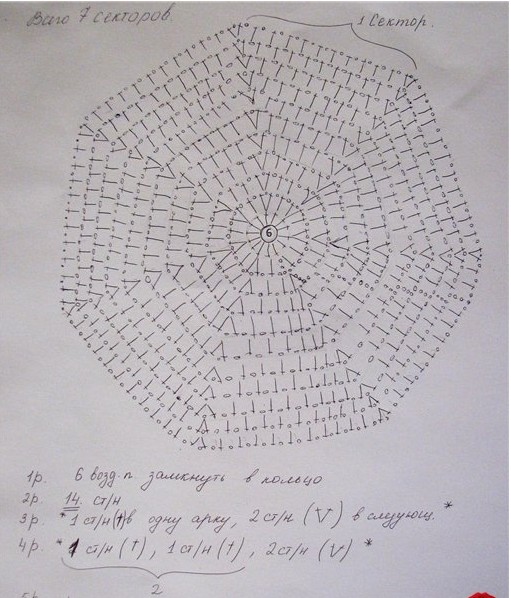 Всего 7 секторов.
1 Сектор.
6
1р. 6 возд. п. замкнуть в кольцо
2р. 14 ст/н
3р. *1 ст/н (†) в одну арку, 2 ст/н (V) в следующ. *
4р. * 1 ст/н (†), 1 ст/н (†), 2 ст/н (V) *
2